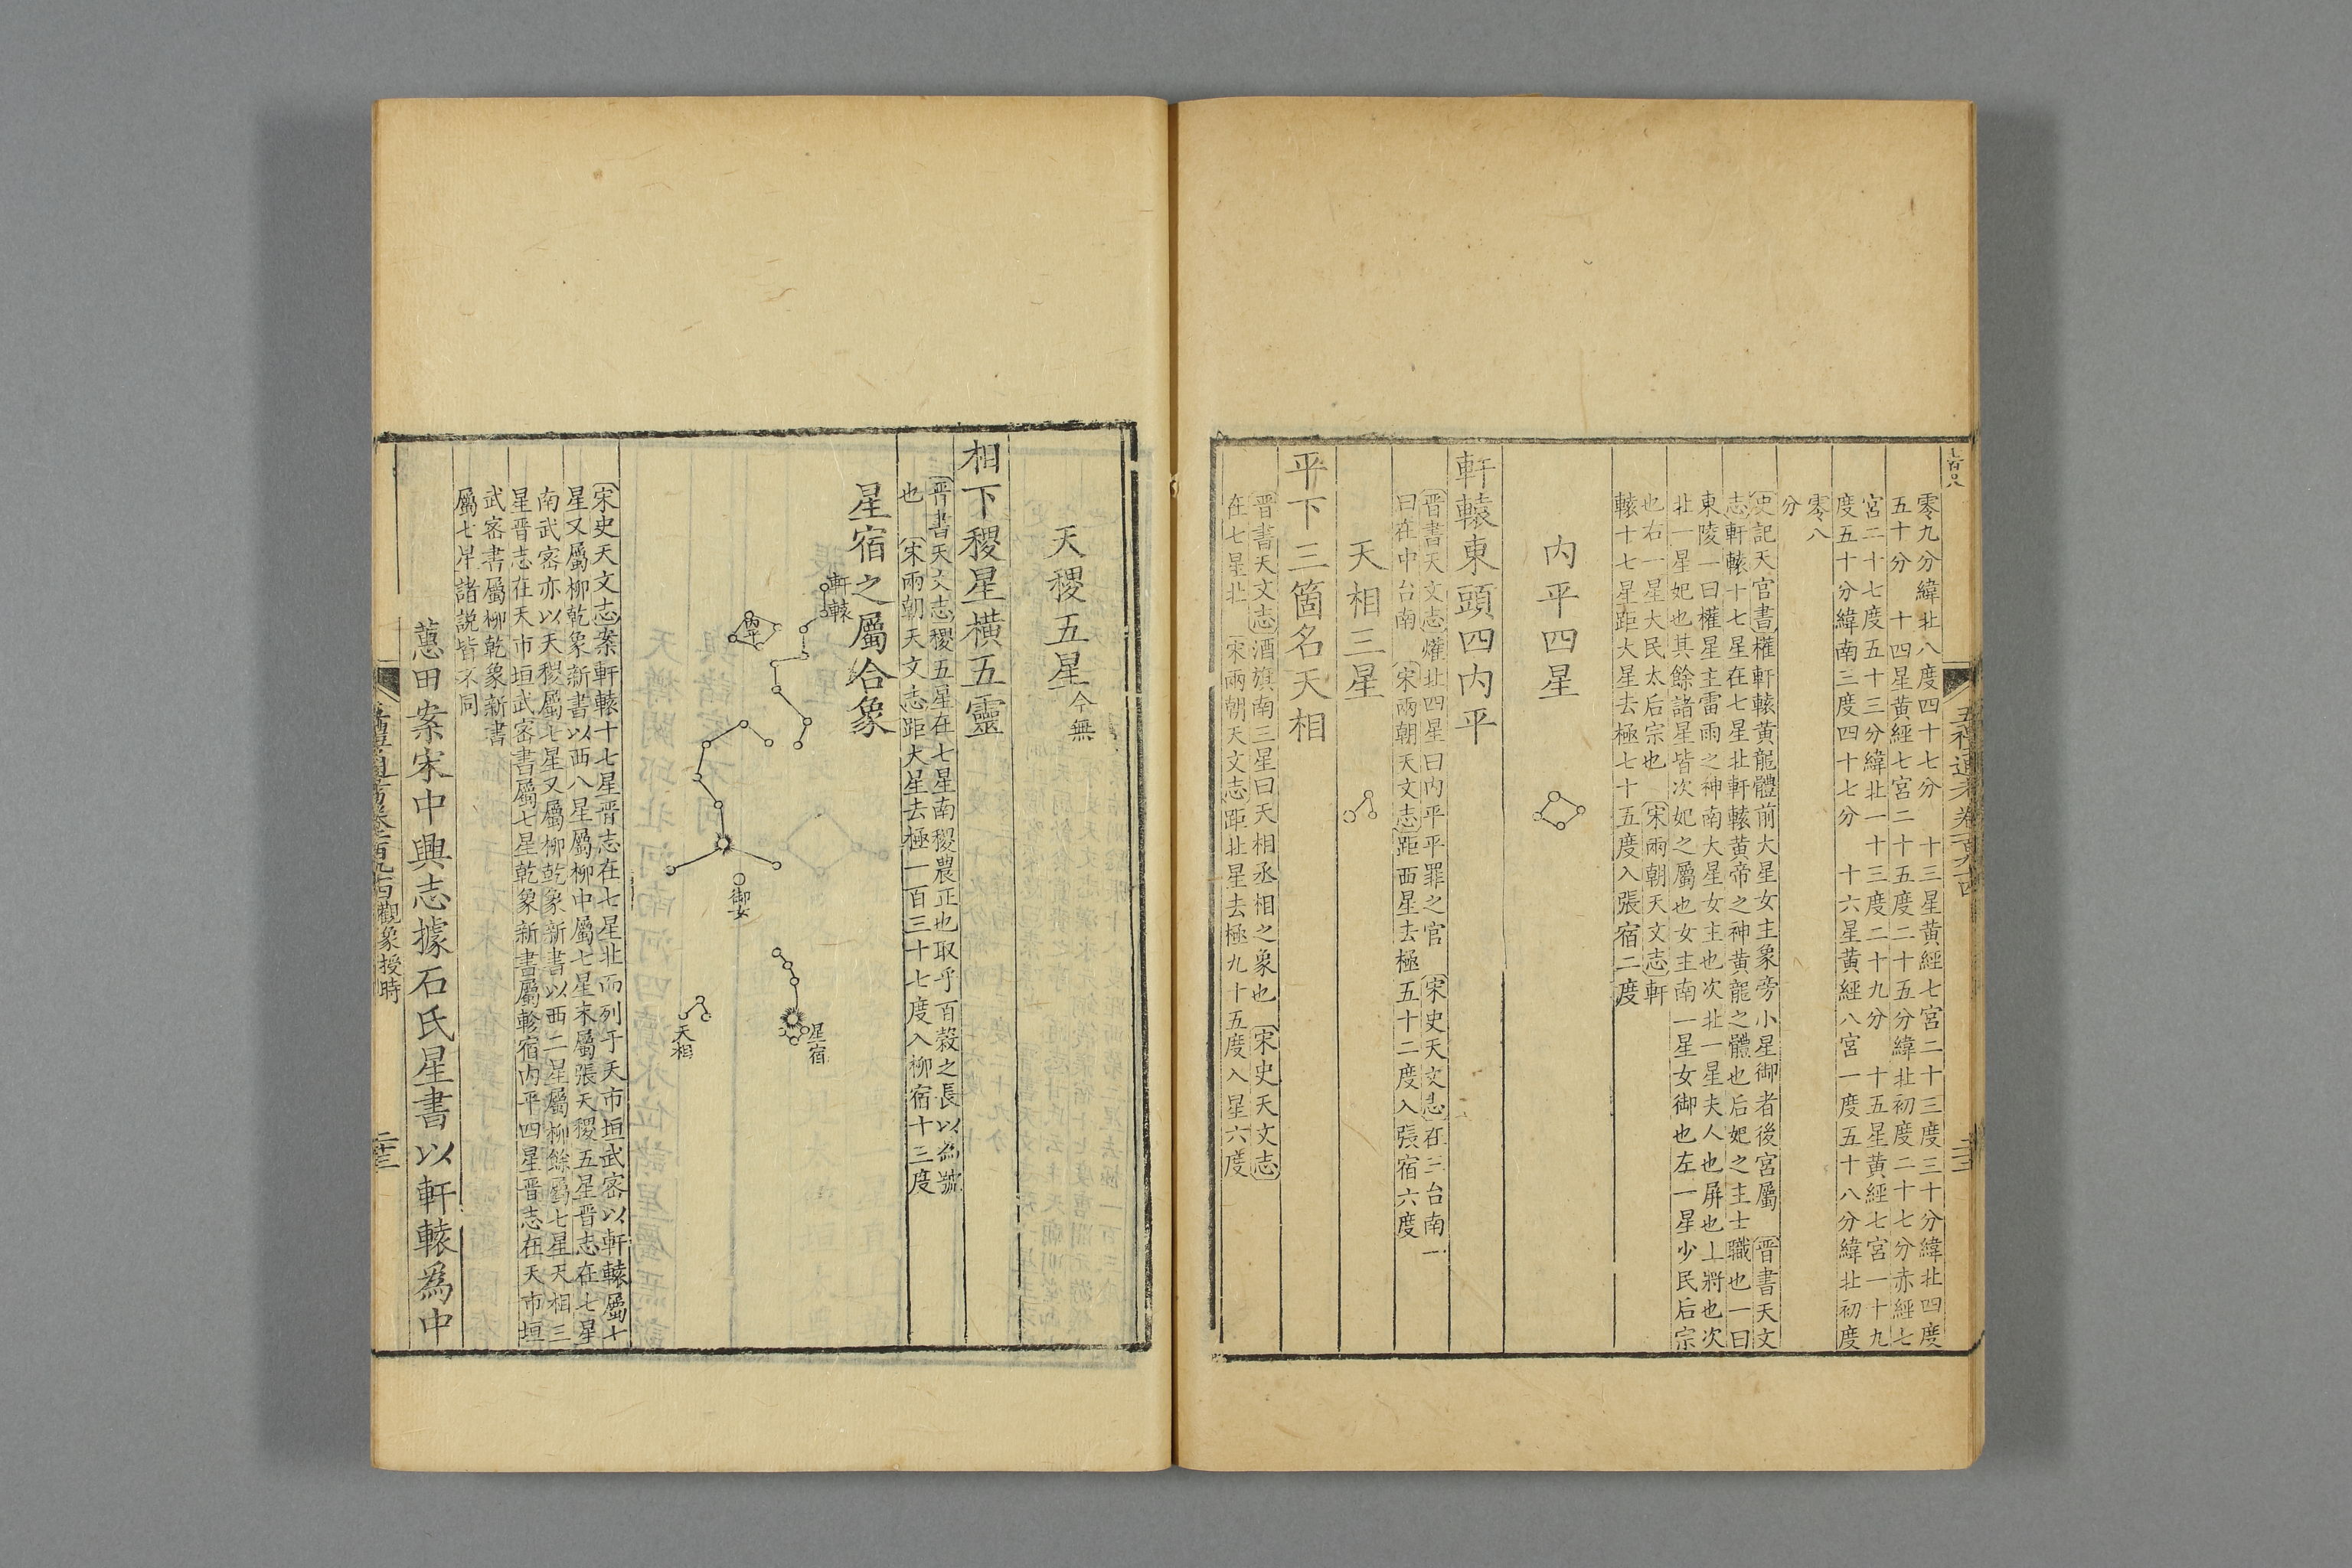 七百○八
零九分緯北八度四十七分　十三星黃經七宮二十三度三十分緯北四度
五十分　十四星黃經七宮二十五度二十五分緯北初度二十七分赤經七
宮二十七度五十三分緯北一十三度二十九分　十五星黃經七宮一十九
度五十分緯南三度四十七分　十六星黃經八宮一度五十八分緯北初度
零八
分
史記天官書權軒轅黃龍體前大星女主象旁小星御者後宮屬　晋書天文
志軒轅十七星在七星北軒轅黃帝之神黃龍之體也后妃之主士職也一曰
東陵一曰權星主雷雨之神南大星女主也次北一星夫人也屏也上將也次
北一星妃也其餘諸星皆次妃之屬也女主南一星女御也左一星少民后宗
也右一星大民太后宗也　宋兩朝天文志軒
轅十七星距大星去極七十五度入張宿二度
內平四星
軒轅東頭四內平
晋書天文志爟北四星曰內平平罪之官　宋史天文志在三台南一
曰在中台南　宋兩朝天文志距西星去極五十二度入張宿六度
天相三星
平下三箇名天相
晋書天文志酒旗南三星曰天相丞相之象也　宋史天文志
在七星北　宋兩朝天文志距北星去極九十五度入星六度
五禮通考卷一百九十四
二十二
天稷五星今無
相下稷星橫五靈
晋書天文志稷五星在七星南稷農正也取乎百穀之長以為號
也　宋兩朝天文志距大星去極一百三十七度入柳宿十三度
星宿之屬合象
軒轅
內平
御女
星宿
天相
宋史天文志案軒轅十七星晋志在七星北而列于天市垣武密以軒轅屬七
星又屬柳乾象新書以西八星屬柳中屬七星末屬張天稷五星晋志在七星
南武密亦以天稷屬七星又屬柳乾象新書以西二星屬柳餘屬七星天相三
星晋志在天市垣武密書屬七星乾象新書屬軫宿內平四星晋志在天市垣
武密書屬柳乾象新書
屬七星諸説皆不同
蕙田案宋中興志據石氏星書以軒轅為中
五禮通考卷一百九十四觀象授時
二十三